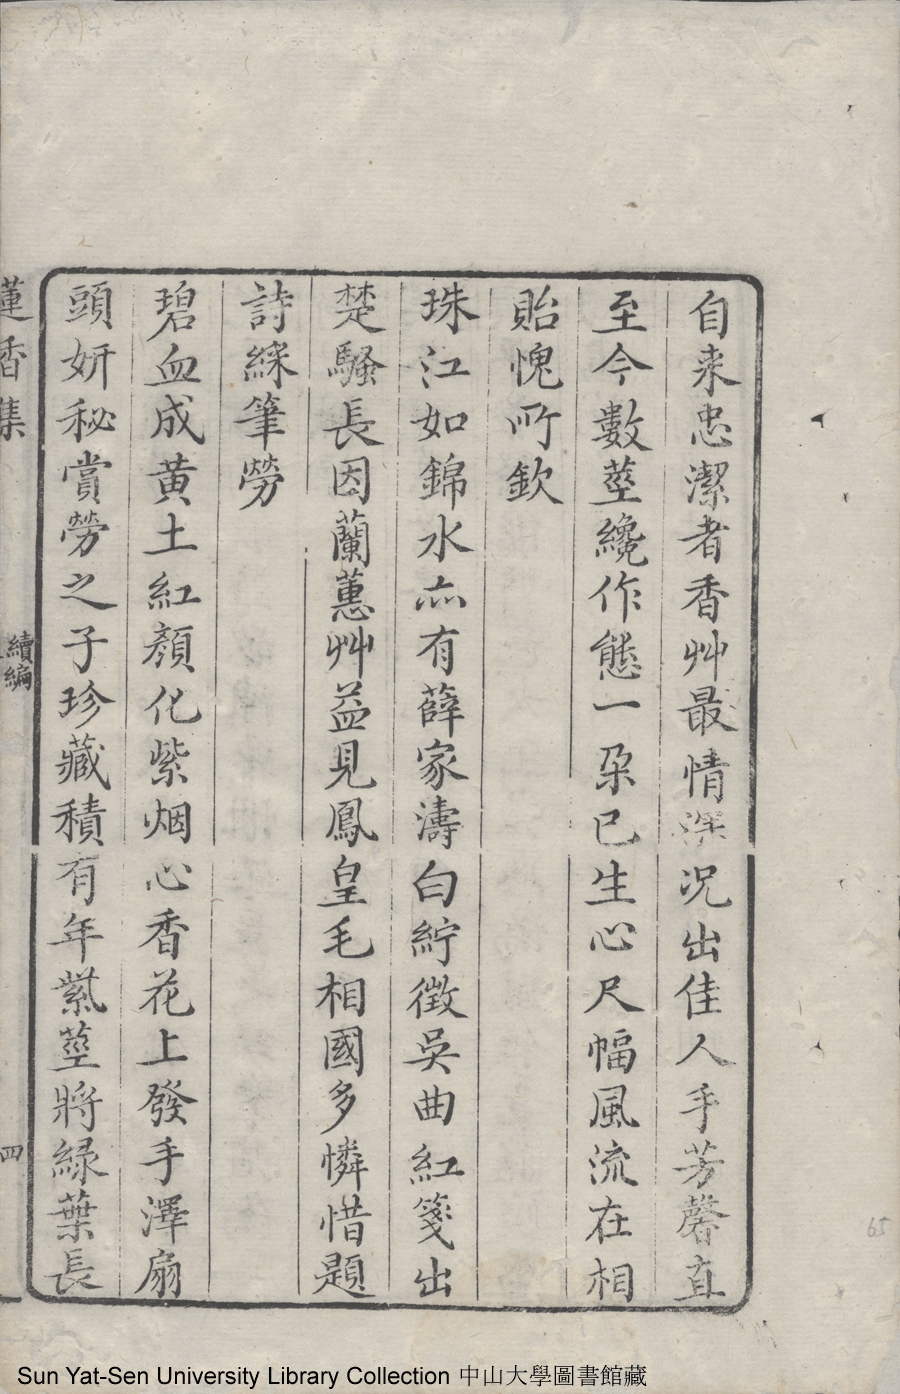 自来忠潔者香艸最情深况出佳人手芳馨直
至今數莖纔作態一朶已生心尺幅風流在相
貽愧所欽
珠江如錦水亦有薛家濤白紵徵吳曲紅箋出
楚騷長因蘭蕙艸益見鳳皇毛相國多憐惜題
詩綵筆勞
碧血成黄土紅顔化紫烟心香花上發手澤扇
頭妍秘賞勞之子珍藏積有年紫莖將緑葉長
蓮香集
續編
四
65
Sun Yat-Sen University Library Collection 中山大學圖書館藏